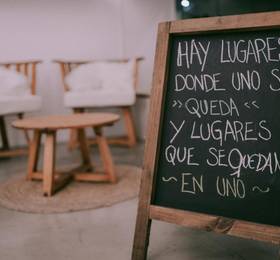 HAY LUGARES
DONDE UNO S
>> QUEDA <<
Y LUGARES
QUE SE QUEDAN
~ EN UNO ~